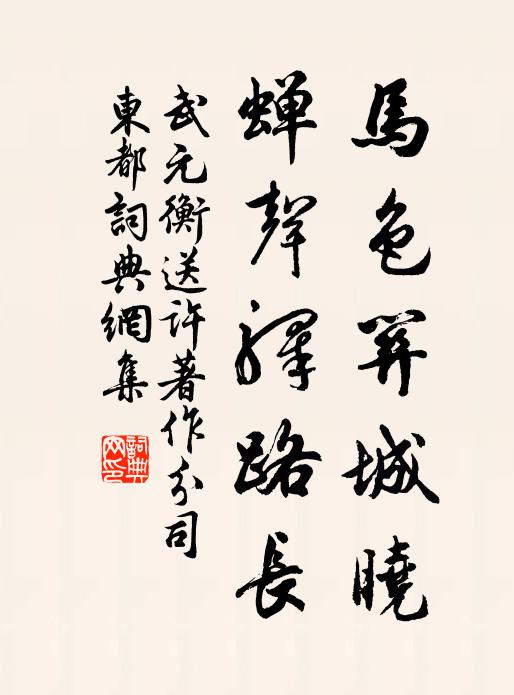 馬色關城曉
蟬聲驛路長
武元衡送許著作分司
東都詞典網集
詞典网印